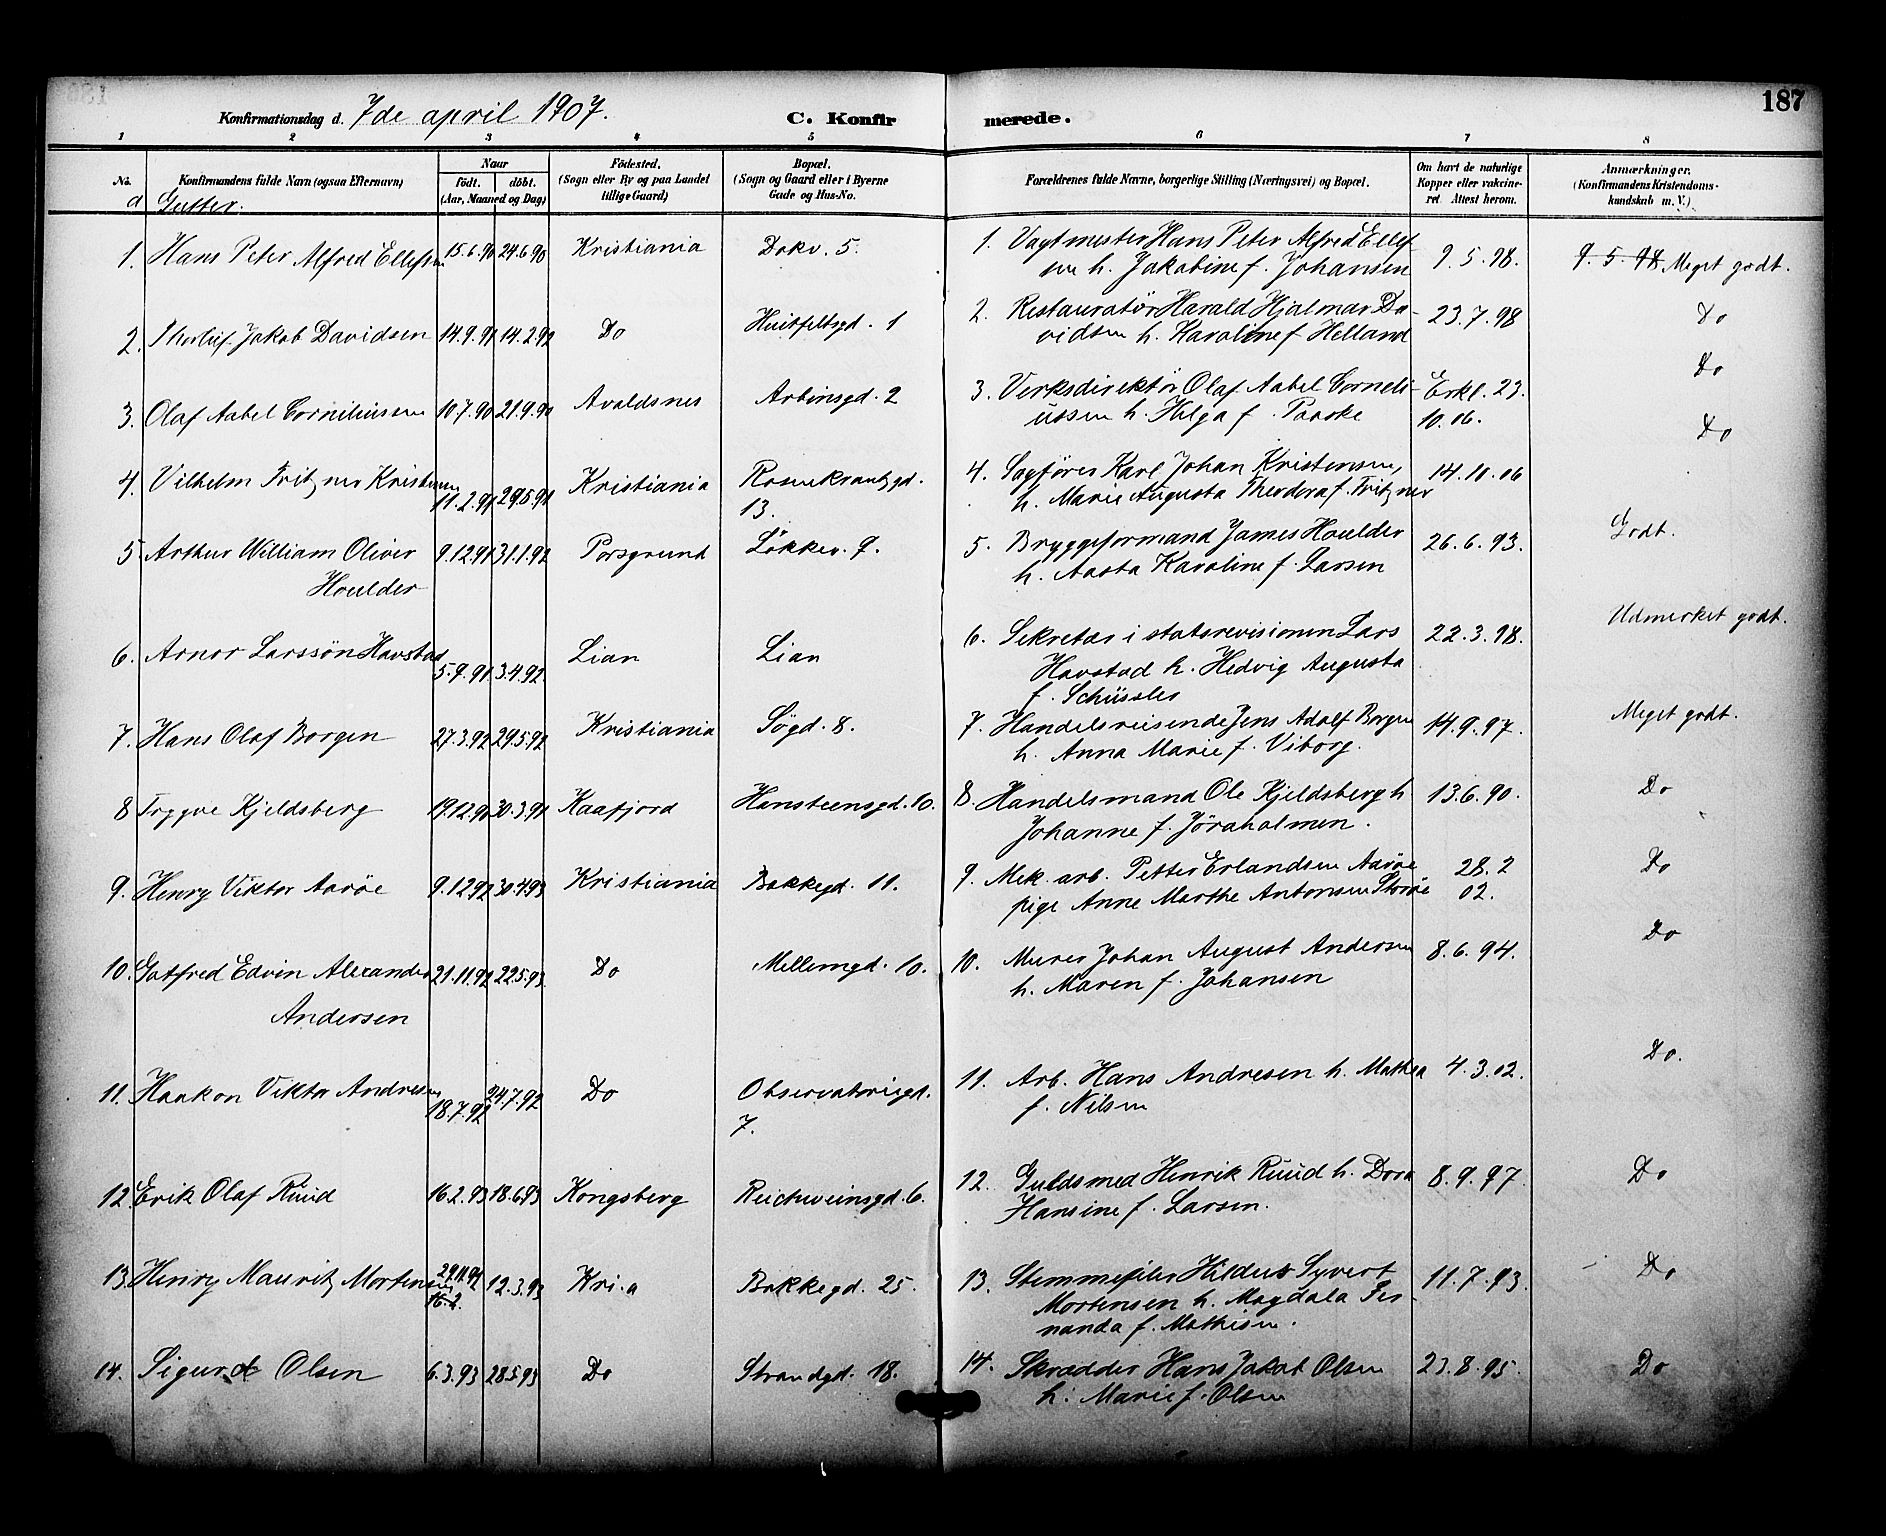 187
Konfirmationsdag d. 7de april 1907. C. Konfirmerede.
1 2 3 4 5 6 7 8
No. Konfirmandens fulde Navn (ogsaa Efternavn) Naar født. døbt. (Aar, Maaned og Dag) Fødested. (Sogn eller By og paa Landet tillige Gaard) Bopæl. (Sogn og Gaard eller i Byerne Gade og Hus-No. Forældrenes fulde Navne, borgerlige Stilling (Næringsvei) og Bopæl. Om havt de naturlige Kopper eller vakcineret. Attest herom. Anmærkninger. (Konfirmandens Kristendomskundskab m. V.)
a Gutter.
1. Hans Peter Alfred Ellefsen 15.6.90 24.6.90 Kristiania Dokv. 5. 1. Vagtmester Hans Peter Alfred Ellef
sen h. Jakobine f. Johansen 9.5.98. 9.5.98 Meget godt.
2. Thorleif Jakob Davidsen 14.9.91 14.2.92 Do Huitfeltsgd. 1 2. Restauratør Harald Hjalmar Da-
vidsen h. Karoline f Helland 23.7.98 Do
3. Olaf Aabel Corneliussen 10.7.90 21.9.90 Avaldsnes Arbinsgd. 2 3. Verksdirektør Olaf Aabel Corneli-
ussen h. Helga f. Paaske Erkl. 23.
10.06. Do
4. Vilhelm Fritzner Kristensen 11.2.91 29.5.91 Kristiania Rosenkrantzgd.
13. 4. Sagfører Karl Johan Kristensen,
h. Marie Augusta Theodora f. Fritzner 14.10.06 Do
5 Arthur William Oliver
Houlder 9.12.91 31.1.92 Porsgrund Løkkev. 9. 5. Bryggeformand James Houlder
h. Aasta Karoline f. Larsen 26.6.93. Godt.
6. Arnor Larssøn Havstad 5.9.91 3.4.92. Lian Lian 6. Sekretær i statsrevisionen Lars
Havstad h. Hedvig Augusta
f. Schüssler 22.3.98. Udmerket godt.
7. Hans Olaf Borgen 27.3.92 29.5.92 Kristiania Søgd. 8. 7. Handelsreisende Jens Adolf Borgen
h. Anna Marie f. Viborg. 14.9.97. Meget godt.
8 Trygve Kjeldsberg 19.12.90 30.3.91 Kaafjord Hansteensgd. 10. 8. Handelsmand Ole Kjeldsberg h
Johanne f. Jøraholmen. 13.6.90. Do
9. Henry Viktor Aarøe 9.12.92 30.4.93 Kristiania Bakkegd. 11. 9. Mek. arb. Petter Erlandsen Aarøe
pige Anne Marthe Antonsen 28.2
02. Do
10. Gotfred Edvin Alexander
Andersen 21.11.92 22.5.93. Do Mellemgd. 10. 10. Murer Johan August Andersen
h. Maren f. Johansen 8.6.94. Do
11. Haakon Viktor Andresen 18.7.92 24.7.92 Do Observatoriegd.
7. 11. Arb. Hans Andresen h. Mathea
f. Nilsen 4.3.02. Do.
12. Erik Olaf Ruud 16.2.93 18.6.93 Kongsberg Reichweinsgd. 6. 12. Guldsmed Henrik Ruud h. Dora
Hansine f. Larsen. 8.9.97. Do
13. Henry Mauritz Mortensen 29.11.91
16.2. 12.3.93 Kr.i.a Bakkegd. 25. 13. Stemmefiler Hildus Syvert
Mortensen h. Magdala Fer-
nanda f. Mathisen. 11.7.93. Do
14. Sigurd Olsen 6.3.93 28.5.93 Do Strandgd. 18. 14. Skrædder Hans Jakob Olsen
h. Marie f. Olsen 23.8.95. Do